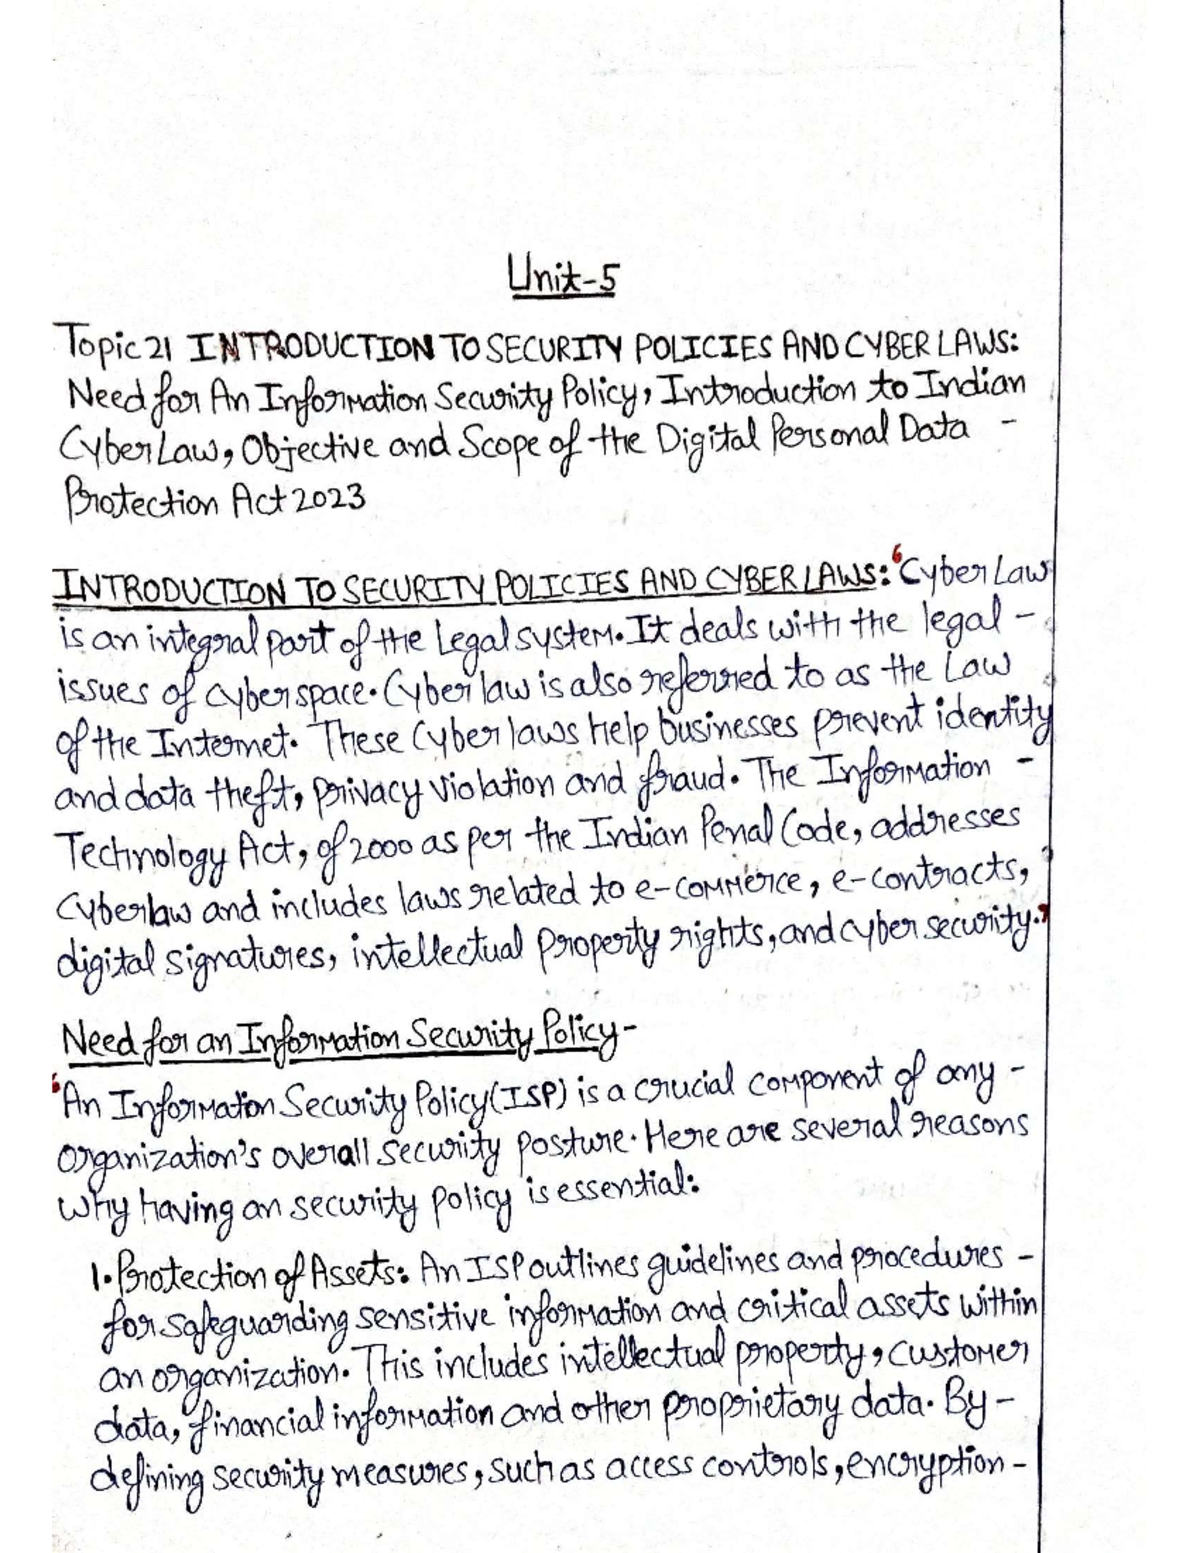 Unit-5
Topic 21 INTRODUCTION TO SECURITY POLICIES AND CYBER LAWS:
Need for An Information Security Policy, Introduction to Indian
Cyber Law, Objective and Scope of the Digital Personal Data -
Protection Act 2023
INTRODUCTION TO SECURITY POLICIES AND CYBER LAWS: "Cyber Law
is an integral part of the Legal system. It deals with the legal -
issues of cyberspace. Cyber law is also referred to as the Law
of the Internet. These Cyber laws help businesses prevent identity
and data theft, privacy violation and fraud. The Information -
Technology Act, of 2000 as per the Indian Penal Code, addresses
Cyberlaw and includes laws related to e-commerce, e-contracts,
digital signatures, intellectual property rights, and cyber security."
Need for an Information Security Policy -
"An Information Security Policy (ISP) is a crucial component of any -
organization's overall security posture. Here are several reasons
why having an security policy is essential:
1. Protection of Assets: An ISP outlines guidelines and procedures -
for safeguarding sensitive information and critical assets within
an organization. This includes intellectual property, customer
data, financial information and other proprietary data. By -
defining security measures, such as access controls, encryption -